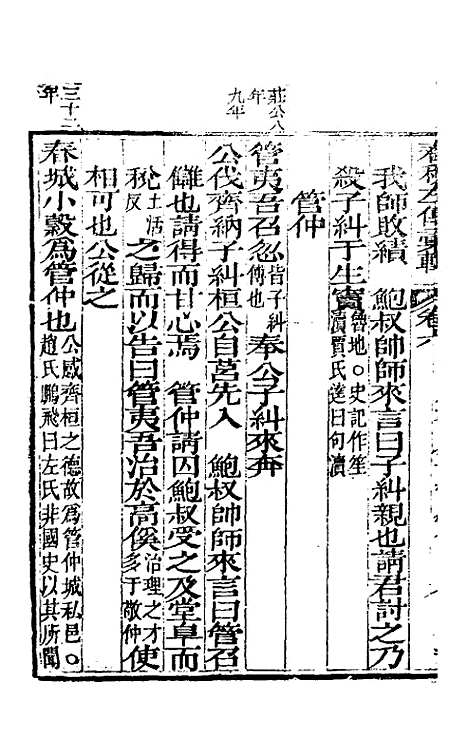 我師敗績　鮑叔帥師來言曰子糾親也請君討之乃
殺子糾于生竇魯地○史記作笙瀆賈氏逵曰句瀆
管仲
莊公八年
九年
管夷吾召忽皆子糾傅也奉公子糾來奔
公伐齊納子糾桓公自莒先入　鮑叔帥師來言曰管召
讎也請得而甘心焉　管仲請囚鮑叔受之及堂阜而
稅土活反之歸而以告曰管夷吾治於高傒治理之才多于敬仲使
相可也公從之
三十二年
春城小穀為管仲也公感齊桓之德故為管仲城私邑○趙氏鵬飛曰左氏非國史以其所聞